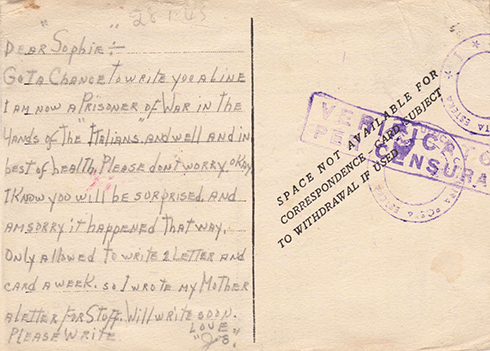 28-1-43
Dear Sophie:-
Got a Chance to write you a line
I am now a Prisoner of War in the
Hands of the "Italians", and well and in
best of health, Please don't worry okay
I know you will be surprised, and
am sorry it happened that way,
Only allowed to write 1 Letter and
card a week. so I wrote my Mother
a letter for stuff. Will write soon.
Please write
Love
"Jo."
SPACE NOT AVAILABLE FOR
CORRESPONDENCE. CARD SUBJECT
TO WITHDRAWAL IF USED
VERIFICATO PER
CENSURA